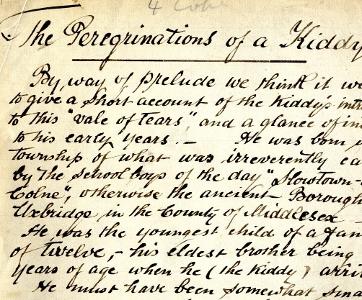 4
The Peregrinations of a Kiddy
By, way of prelude we think it we
to give a short account of the Kiddy's
to this "vale of tears", and a glance of
to his early years. — He was born
township of what was irreverently ca
by the School boys of the day "Slowtown-
Colne", otherwise the ancient Borough
Uxbridge, in the County of Middlesex
He was the youngest child of a fam
of twelve, - his eldest brother being
years of age when he (the Kiddy) arri
He must have been somewhat